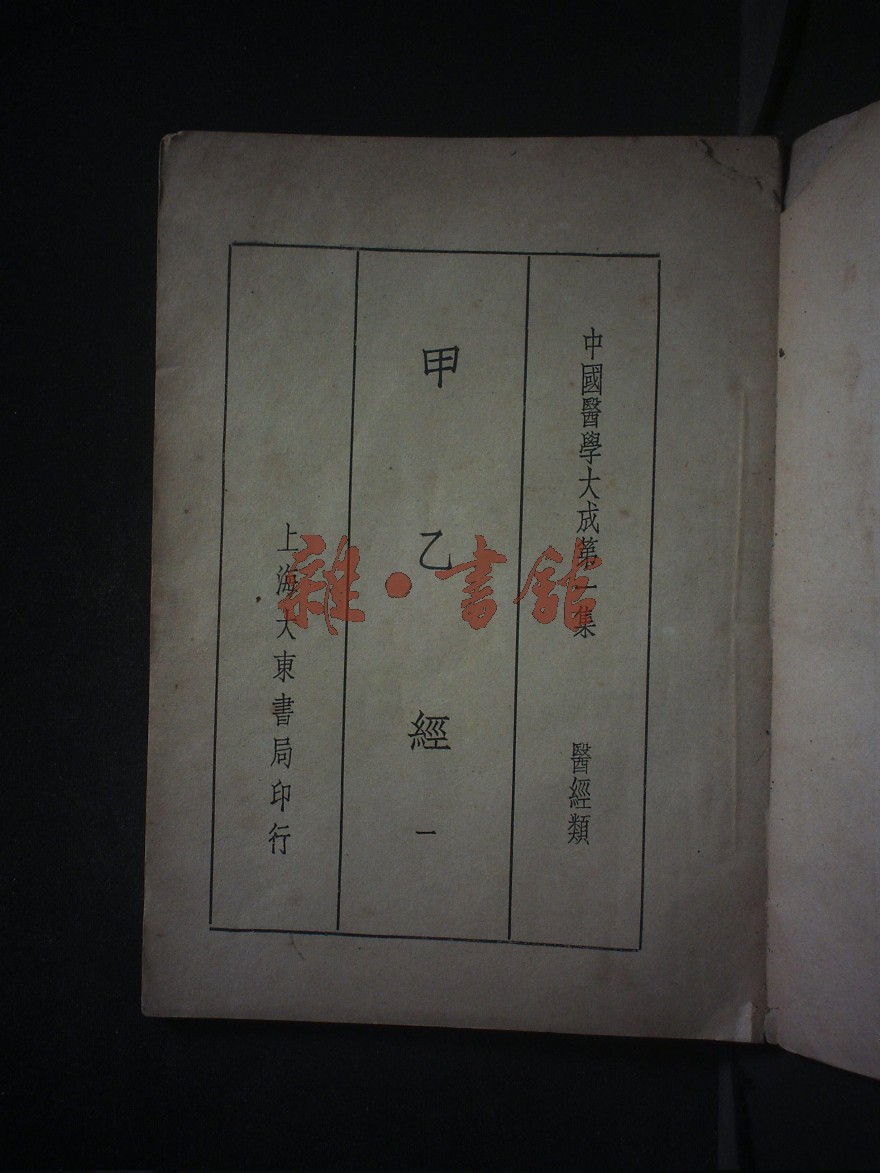 中國醫學大成第一集 醫經類
甲乙經 一
上海大東書局印行
雜·書館